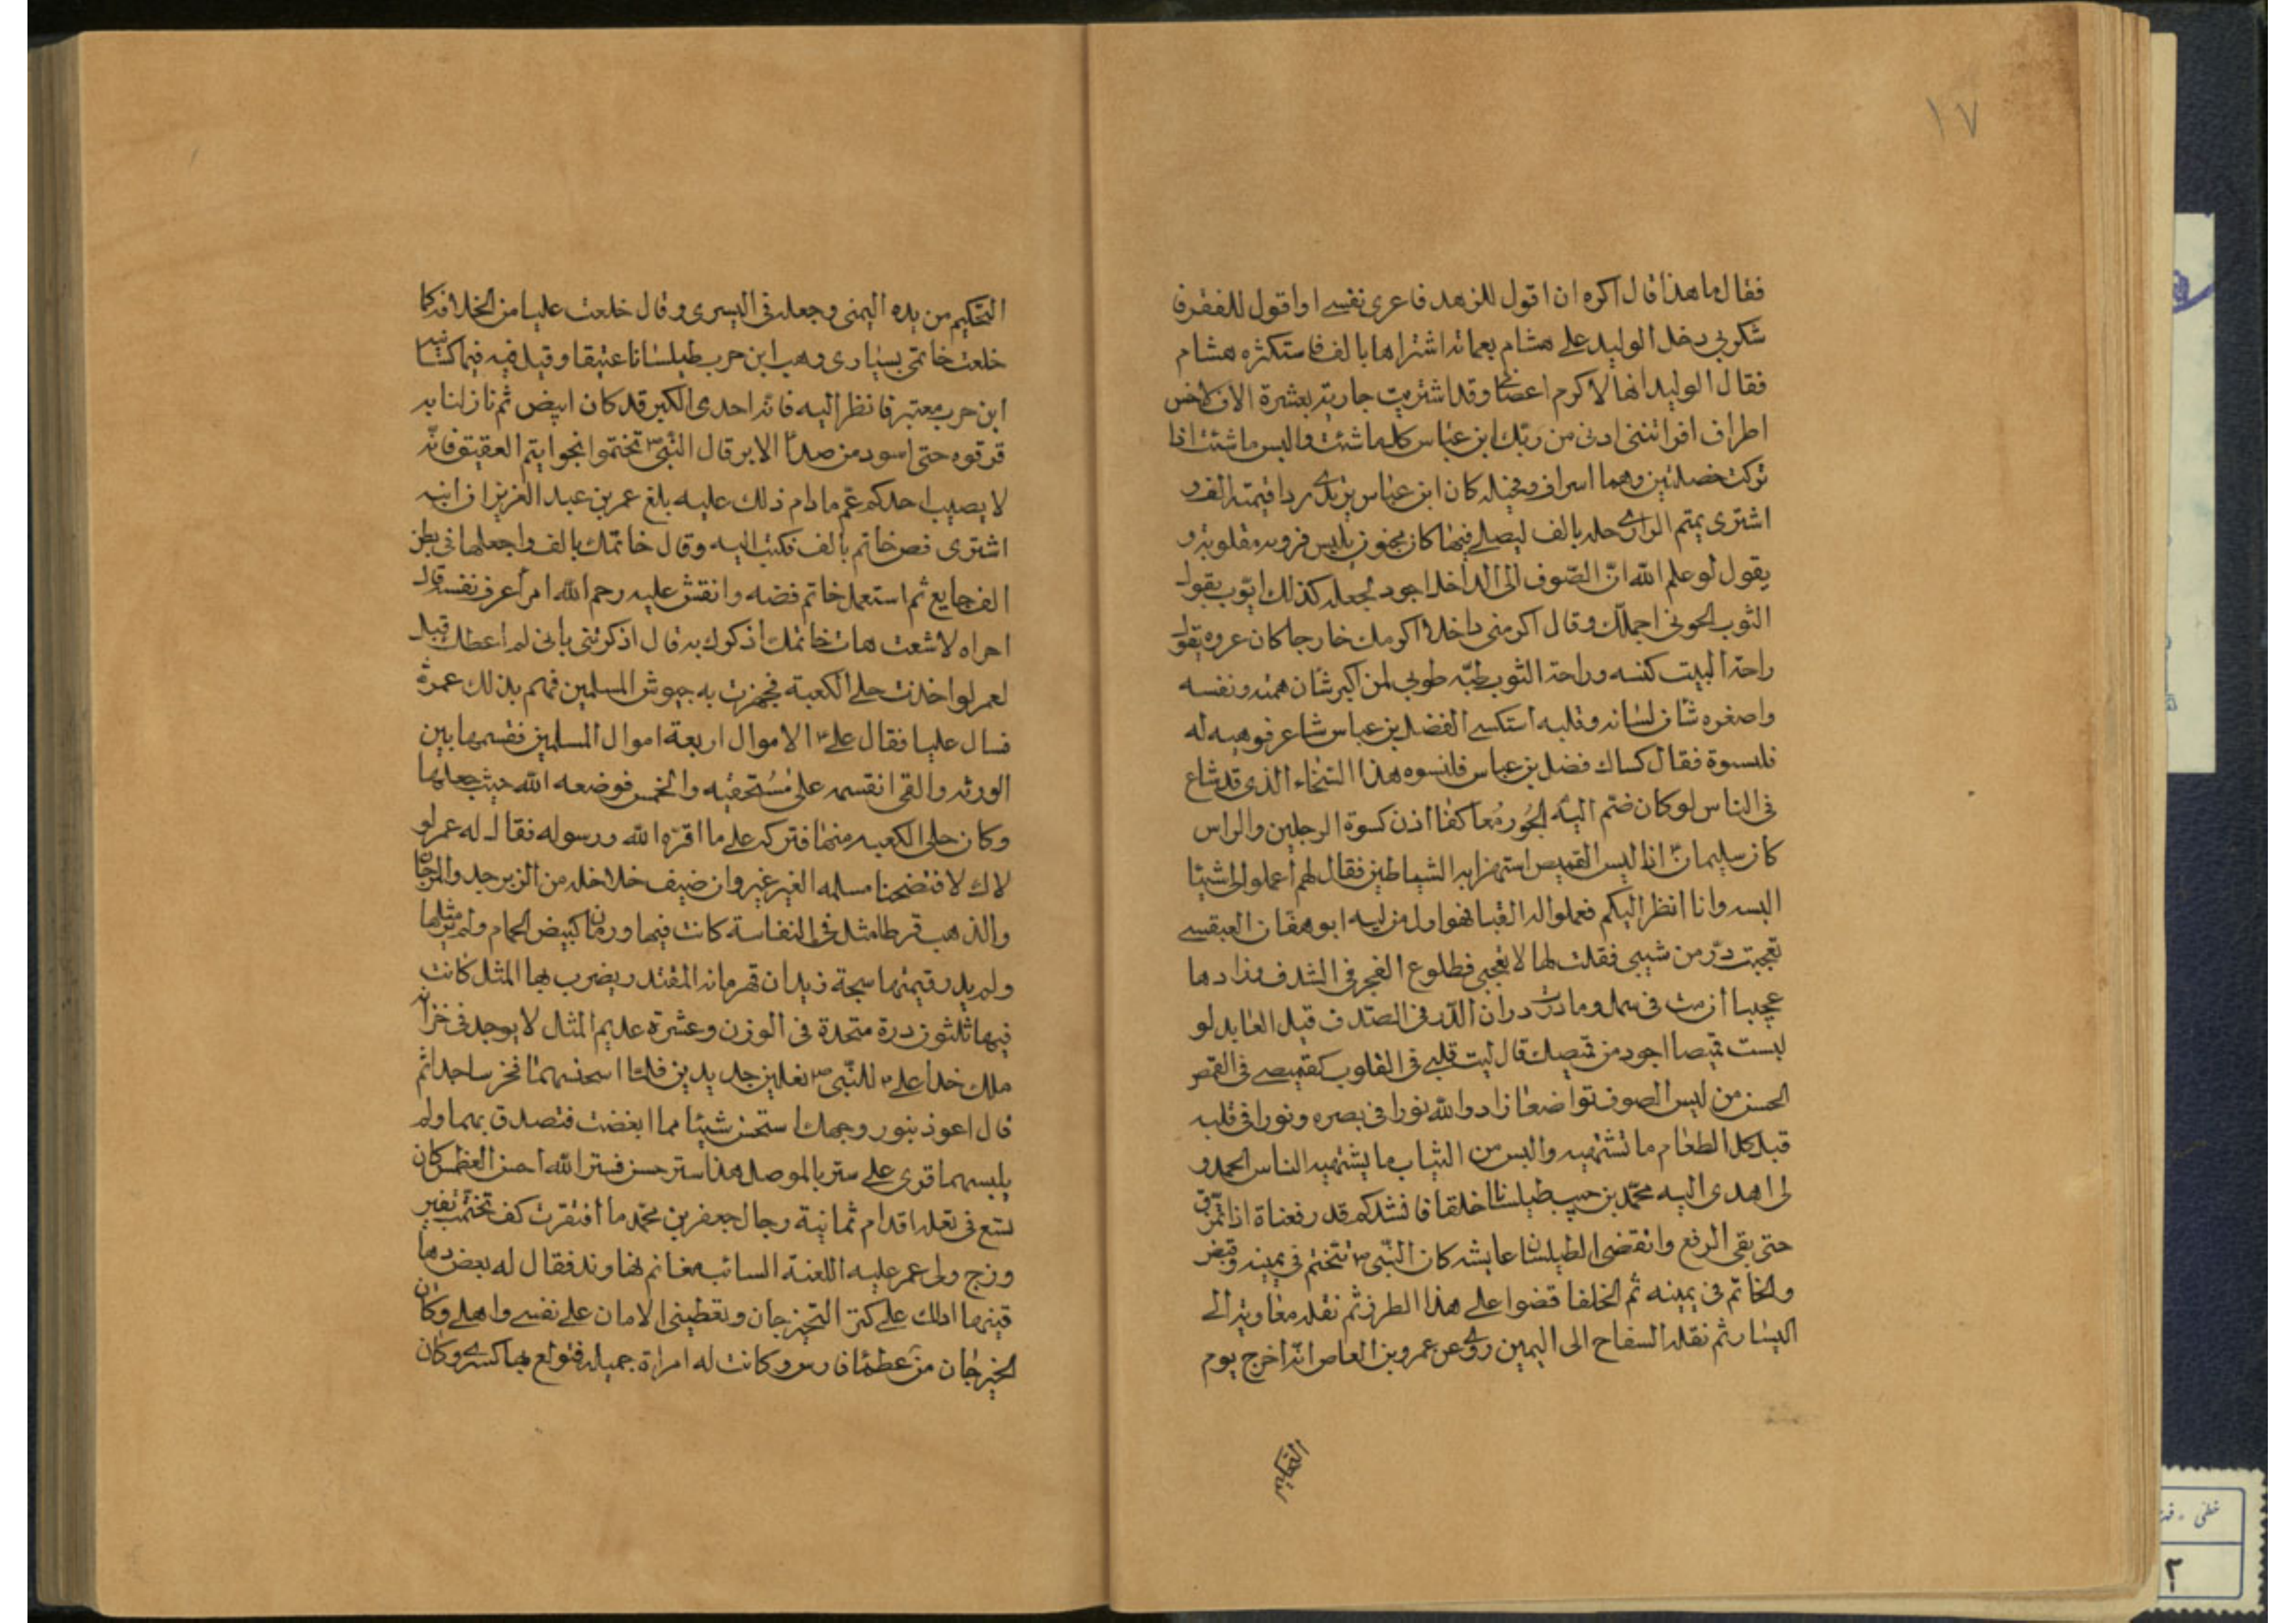 ١٧
فقال ما هذا قال اكره ان اقول للزهد فاعرى نفسى اواقول للفقر فا
شكو ربي دخل الوليد على هشام بعمامه اشتراها بالف فاستكثره هشام
فقال الوليد انها لاكرم اعضائى وقد اشتريت جارية بعشرة الاف لاخس
اطراف افراتننى ادنى من ربك ابن عباس كل ما شئت والبس ما شئت اذا
تركت خصلتين وهما اسراف ومخيله كان ابن عباس يرتدى ردا قيمته الف و
اشترى تميم الدارى حله بالف ليصلى فيها كان مجنون يلبس فروه مقلوبة و
يقول لو علم الله ان الصوف الى الداخل اجود لجعله كذلك ايوب يقول
الثوب اجملك وقال اكرمنى داخلا اكرمك خارجا كان عروه يقول
راحة البيت كنسه وراحة الثوب طيه طوبى لمن اكبر شان همته ونفسه
واصغره شان لسانه وقلبه استكسى الفضل بن عباس شاعر فوهبه له
قلنسوة فقال كساك فضل بن عباس قلنسوه هذا السخاء الذى قد شاع
فى الناس لو كان ضم اليه معا كفا اذن كسوة الرجلين والراس
كان سليمان اذا لبس القميص استهزا به الشياطين فقال لهم اعملوا لى شيئا
البسه وانا انظر اليكم فعملوا له القبا فهو اول من لبسه ابو هفان العبقسى
تعجبت در من شيبى فقلت لها لا تعجبى فطلوع الفجر فى السدف وزادها
عجبا ان رحت فى سمل وما درت در ان الدر فى الصدف قيل العابد لو
لبست قميصا اجود من قميصك قال ليت قلبى فى القلوب كقميصى فى القمص
الحسن من لبس الصوف تواضعا زاده الله نورا فى بصره ونورا فى قلبه
قيل كل الطعام ما تشتهيه والبس من الثياب ما يشتهيه الناس الحمدو
لى اهدى اليه محمد بن حبيب طيلسانا خلقا فانشدكم قد رفعناه اذا تمزق
حتى بقى الرفع وانقضى الطيلسان عايشه كان النبى ص يتختم فى يمينه وقبض
والخاتم فى يمينه ثم الخلفا قضوا على هذا الطرز ثم نقله معاوية الى
اليسار ثم نقله السفاح الى اليمين روى عن عمرو بن العاص انه اخرج يوم
التحكيم من يده اليمنى وجعله فى اليسرى وقال خلعت عليا من الخلافه كما
خلعت خاتمى بسيارى وهب ابن حرب طيلسانا عتيقا وقيل فيه فيما كسانيه
ابن حرب معتبر فانظر اليه فانه احدى الكبر قد كان ابيض ثم ما زلنا به
نرفوه حتى اسود من صدأ الابر قال النبى ص تختموا بخواتيم العقيق فانه
لا يصيب احدكم غم ما دام ذلك عليه بلغ عمر بن عبد العزيز ان ابنه
اشترى فص خاتم بالف فكتب اليه وقال خاتمك بالف واجعلها فى بطن
الف جايع ثم استعمل خاتم فضه وانقش عليه رحم الله امرأ عرف نفسه قال
امراه لاشعت هات خاتمك اذكرك به قال اذكرتنى بانى لم اعطك قيل
لعمر لو اخذت حلى الكعبة فجهزت به جيوش المسلمين فهم بذلك عمر
فسال عليا فقال على ع الاموال اربعة اموال المسلمين فقسمها بين
الورثه والفى انقسمه على مستحقيه والخمس فوضعه الله حيث جعلها
وكان حلى الكعبه منها فتركه على ما اقره الله ورسوله فقال له عمر لو
لاك لافتضحنا مسلمه الغير غير وان ضيف خلاخله من الزبرجد والمرجان
والذهب قرطا مثل فى النفاسة كانت فيها درتان كبيض الحمام ولم ير مثلها
ولم يدر قيمتها سبحة زيدان قهرمانه المقتدر يضرب بها المثل كانت
فيها ثلثون درة متحدة فى الوزن وعشرة عديم المثل لا يوجد فى خزانه
ملك خدا على ع للنبى ص نعلين جديدين فلما استحسنهما فخر ساجدا ثم
قال اعوذ بنور وجهك استحسن شيئا مما ابغضت فتصدق بهما ولم
يلبسهما قرى على ستر بالموصل هذا ستر حسن فستر الله احسن
تسع فى نعله اقدام ثمانية رجال جعفر بن محمد ما افتقرت كف تختمت بفير
وزج ولى عمر عليه اللعنة السائب مغانم نهاوند فقال له بعض دها
قينها ادلك على كنز النخيرجان وتعطينى الامان على نفسى واهلى وكان
الخيرجان من عظماء فارس وكانت له امراة جميله فتولع بها كسرى وكان
التحكيم